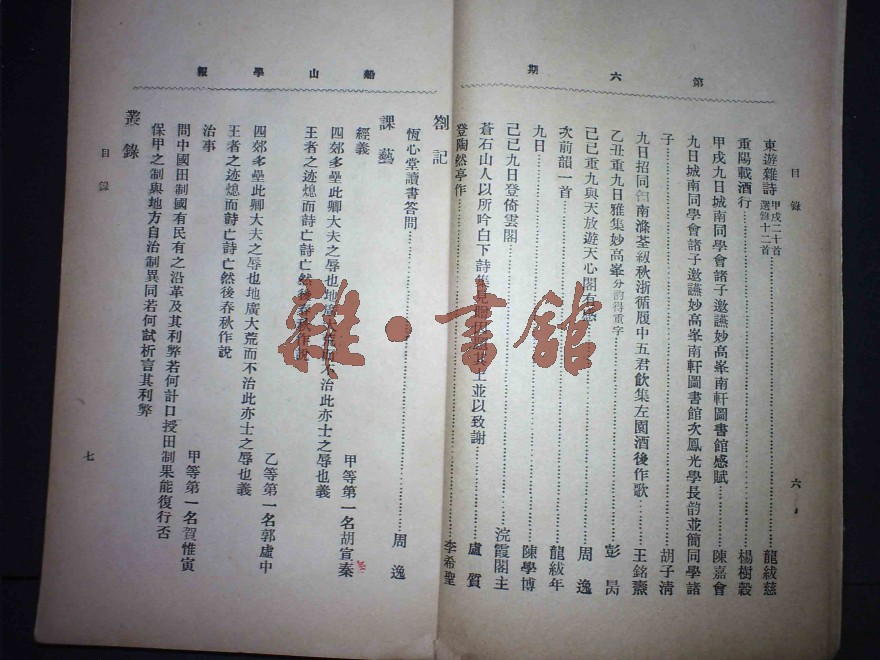 第六期
目錄
東遊雜詩 甲戌二十首 選錄十二首 龍紱慈
重陽載酒行 楊樹穀
甲戌九日城南同學會諸子邀讌妙高峯南軒圖書館感賦 陳嘉會
九日城南同學會諸子邀讌妙高峯南軒圖書館次鳳光學長韵並簡同學諸
子 胡子清
九日招同 南滌荃紉秋浙循履中五君飲集左園酒後作歌 王銘燾
乙丑重九日雅集妙高峯 分韵得重字 彭昺
己巳重九與天放遊天心閣有感 周逸
次前韻一首 龍紱年
九日 陳學博
己巳九日登倚雲閣 浣霞閣主
蒼石山人以所吟白下詩集見 並以致謝 盧質
登陶然亭作 李希聖
六
船山學報
劄記
恆心堂讀書答問 周逸
課藝
經義
四郊多壘此卿大夫之辱也地廣大荒而不治此亦士之辱也義
王者之迹熄而詩亡詩亡然後春秋作說
甲等第一名胡宣秦
四郊多壘此卿大夫之辱也地廣大荒而不治此亦士之辱也義
王者之迹熄而詩亡詩亡然後春秋作說
乙等第一名郭盧中
治事
問中國田制國有民有之沿革及其利弊若何計口授田制果能復行否
保甲之制與地方自治制異同若何試析言其利弊
甲等第一名賀惟寅
叢錄
目錄
七
雜·書館